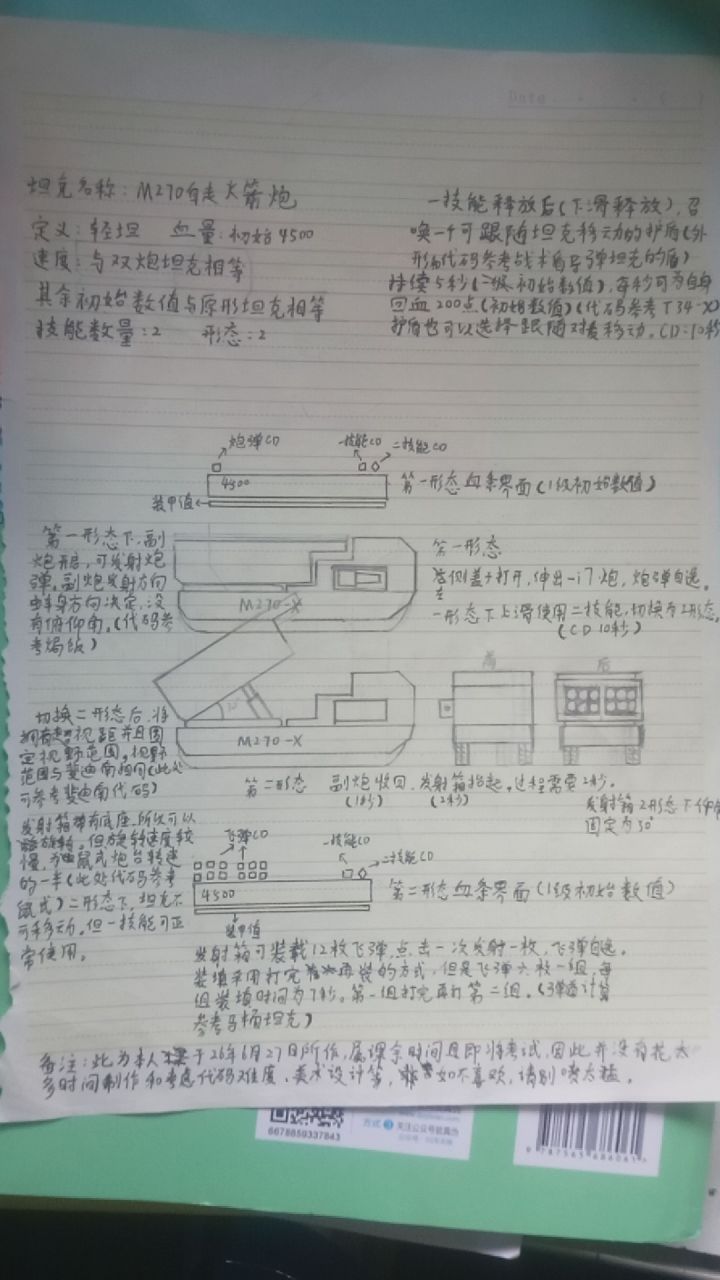 Date
坦克名称：M270自走火箭炮
定义：轻坦 血量：初始4500
速度：与双炮坦克相等
其余初始数值与原形坦克相等
技能数量：2 形态：2
一技能释放后(下滑释放)，召
唤一个可跟随坦克移动的护盾(外
形和代码参考战术自导弹坦克的盾)
持续5秒(一级初始数值)，每秒可为自身
回血200点(初始数值)(代码参考T34-X)
护盾也可以选择跟随对接移动。CD：10秒
炮弹CD 一技能CD 二技能CD
4500
第一形态血条界面(1级初始数值)
装甲值
第一形态下，副
炮开启，可发射炮
弹。副炮发射方向
由车身方向决定，没
有俯仰角。(代码参
考
M270-X
第一形态
左侧盖子打开，伸出一门炮，炮弹自选。
一形态下上滑使用二技能，切换为2形态。
(CD 10秒)
切换二形态后，将
拥有超视距并且固
定视野范围，视野
范围与斐迪南相同(此处
可参考斐迪南代码)
发射箱带有底座，所以可以
旋转。但旋转速度较
慢，为鼠式炮台转速
的一半(此处代码参考
鼠式)二形态下，坦克不
可移动。但一技能可正
常使用。
30°
M270-X
前 后
第二形态 副炮收回，发射箱抬起，过程需要2秒。
(1秒) (2秒)
发射箱2形态下仰角
固定为30°
飞弹CD 一技能CD 二技能CD
4500
第二形态血条界面(1级初始数值)
装甲值
发射箱可装载12枚飞弹，点击一次发射一枚，飞弹自选。
装填采用打完再装的方式，但是飞弹六枚一组，每
组装填时间为7秒。第一组打完再打第二组。(弹道计算
参考马桶坦克)
备注：此为本人于26年6月27日所作，属课余时间且即将考试，因此并没有花太
多时间制作和考虑代码难度、美术设计等，如不喜欢，请别喷太猛。
6678859337843
方式 3 关注公众号
9787565686061